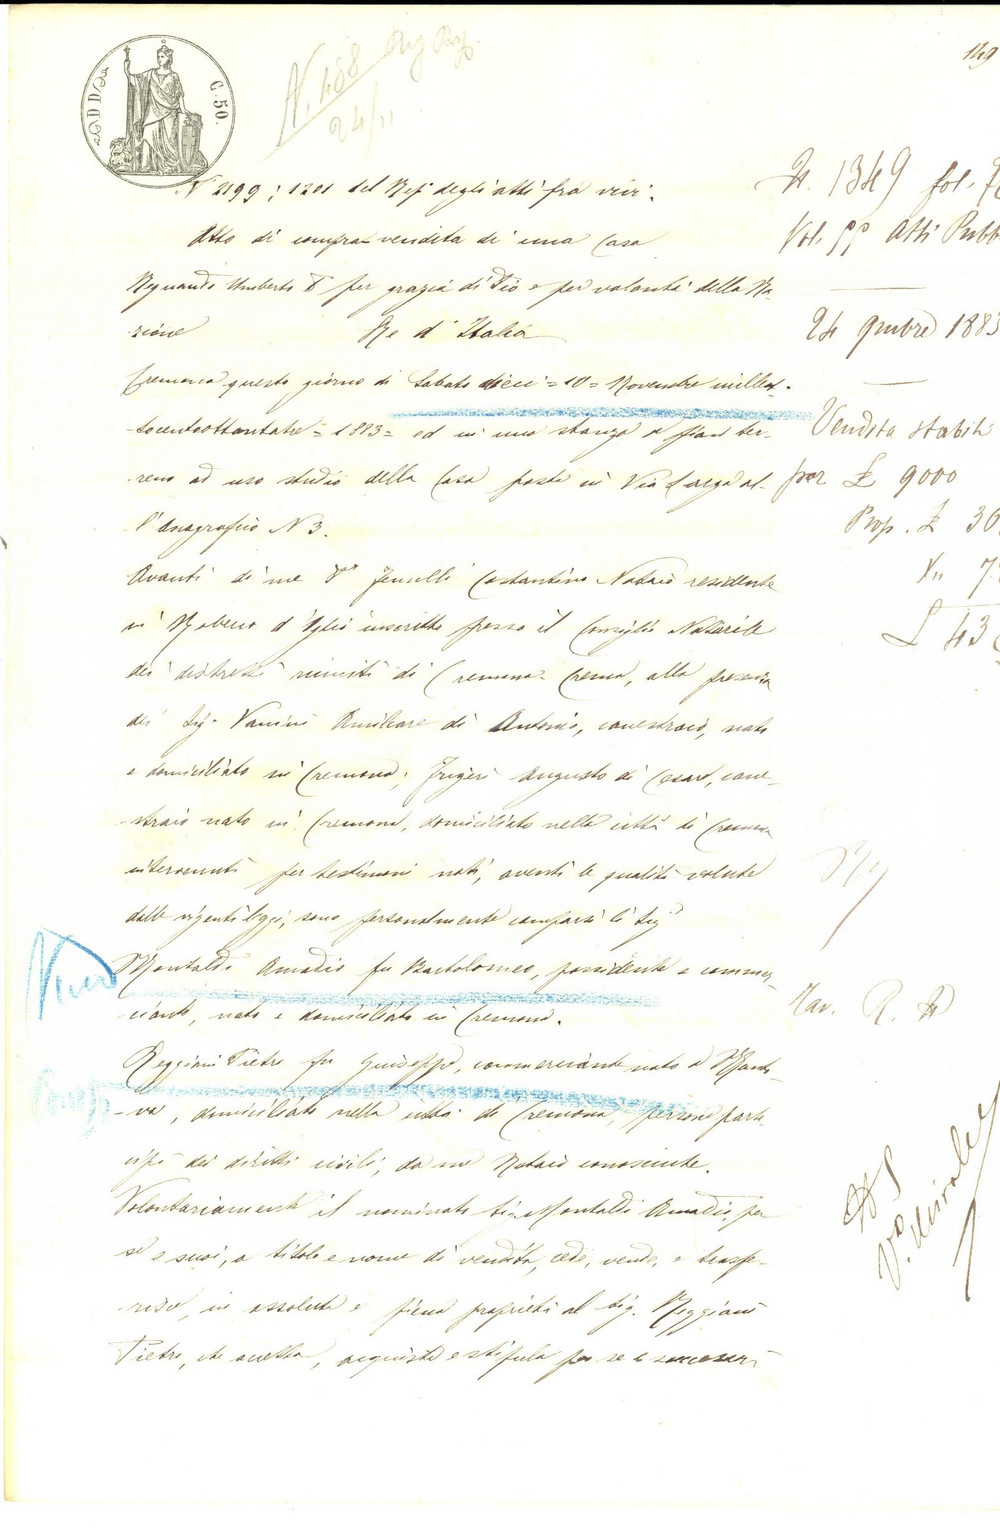 149
DD
C. 50.
N. 488 Reg Rep
24/11
N 2199; 1201 del Rep. degli atti fra vivi.
Atto di compra-vendita di una Casa
Regnando Umberto I° per grazia di Dio e per volontà della Na-
zione Re d'Italia
Cremona questo giorno di Sabato dieci = 10 = Novembre millot-
tocentoottantatre = 1883 = ed in una stanza a pian ter-
reno ad uso studio della Casa posta in Via Larga al-
l'anagrafico N 3.
Avanti di me Dr Costantino Notaio residente
in Robecco d'Oglio inscritto presso il Consiglio Notarile
dei distretti riuniti di Cremona Crema, alla presenza
dei Sig. Vanini Amilcare di Antonio, canestraio, nato
e domiciliato in Cremona; Frigeri Augusto di Cesare, cane-
straio nato in Cremona, domiciliato nella città di Cremona
intervenuti per testimoni noti, aventi le qualità volute
dalle vigenti leggi, sono personalmente comparsi li Sigi
Montaldi Amadio fu Bartolomeo, possidente e commer-
ciante, nato e domiciliato in Cremona.
Reggiani Pietro fu Giuseppe, commerciante nato a Manto-
va, domiciliato nella città di Cremona, persone parte-
cipi dei diritti civili, da me Notaio conosciute.
Volontariamente il nominato Sig. Montaldi Amadio, per
sè e suoi, a titolo e nome di vendita, cede, vende, e trasfe-
risce, in assoluta e piena proprietà al Sig. Reggiani
Pietro, che accetta, acquista e stipula per se e successori
N. 1349 fol. 7
Vol. 99 Atti Pubb
24 9mbre 1883
Vendita stabili
per £ 9000
Prop. £ 36
7
£ 43
R.